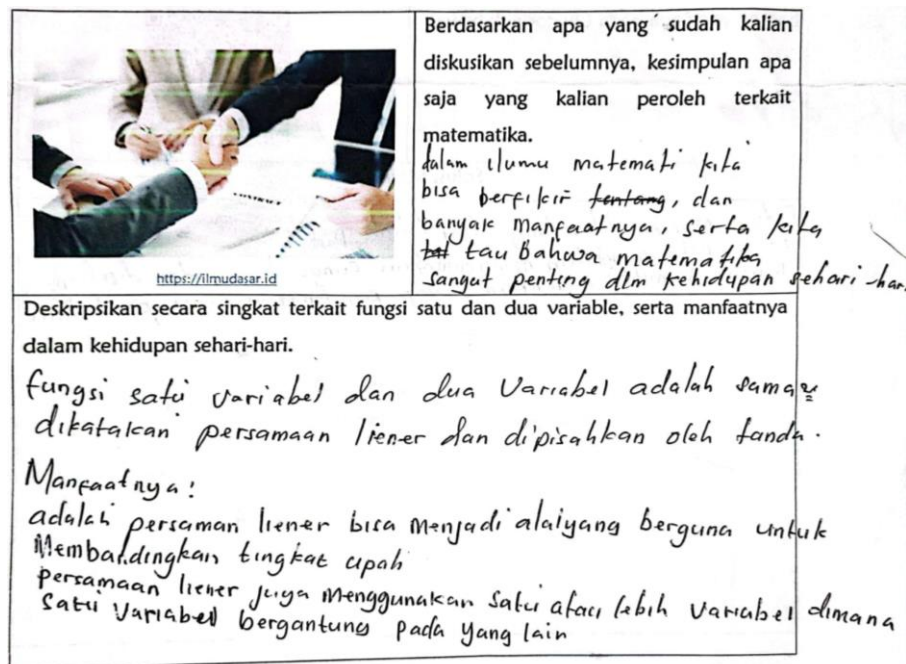 Berdasarkan apa yang sudah kalian
diskusikan sebelumnya, kesimpulan apa
saja yang kalian peroleh terkait
matematika.
dalam ilumu matemati kita
bisa berfikir tentang, dan
banyak manfaatnya, serta kita
tau Bahwa matematika
sangat penting dlm kehidupan sehari-hari
https://ilmudasar.id
Deskripsikan secara singkat terkait fungsi satu dan dua variable, serta manfaatnya
dalam kehidupan sehari-hari.
fungsi satu variabel dan dua Variabel adalah sama2
dikatakan persamaan liener dan dipisahkan oleh tanda.
Manfaatnya:
adalah persaman liener bisa Menjadi alaiyang berguna untuk
Membandingkan tingkat upah
persamaan liener juga Menggunakan satu atau lebih variabel dimana
satu Variabel bergantung pada yang lain